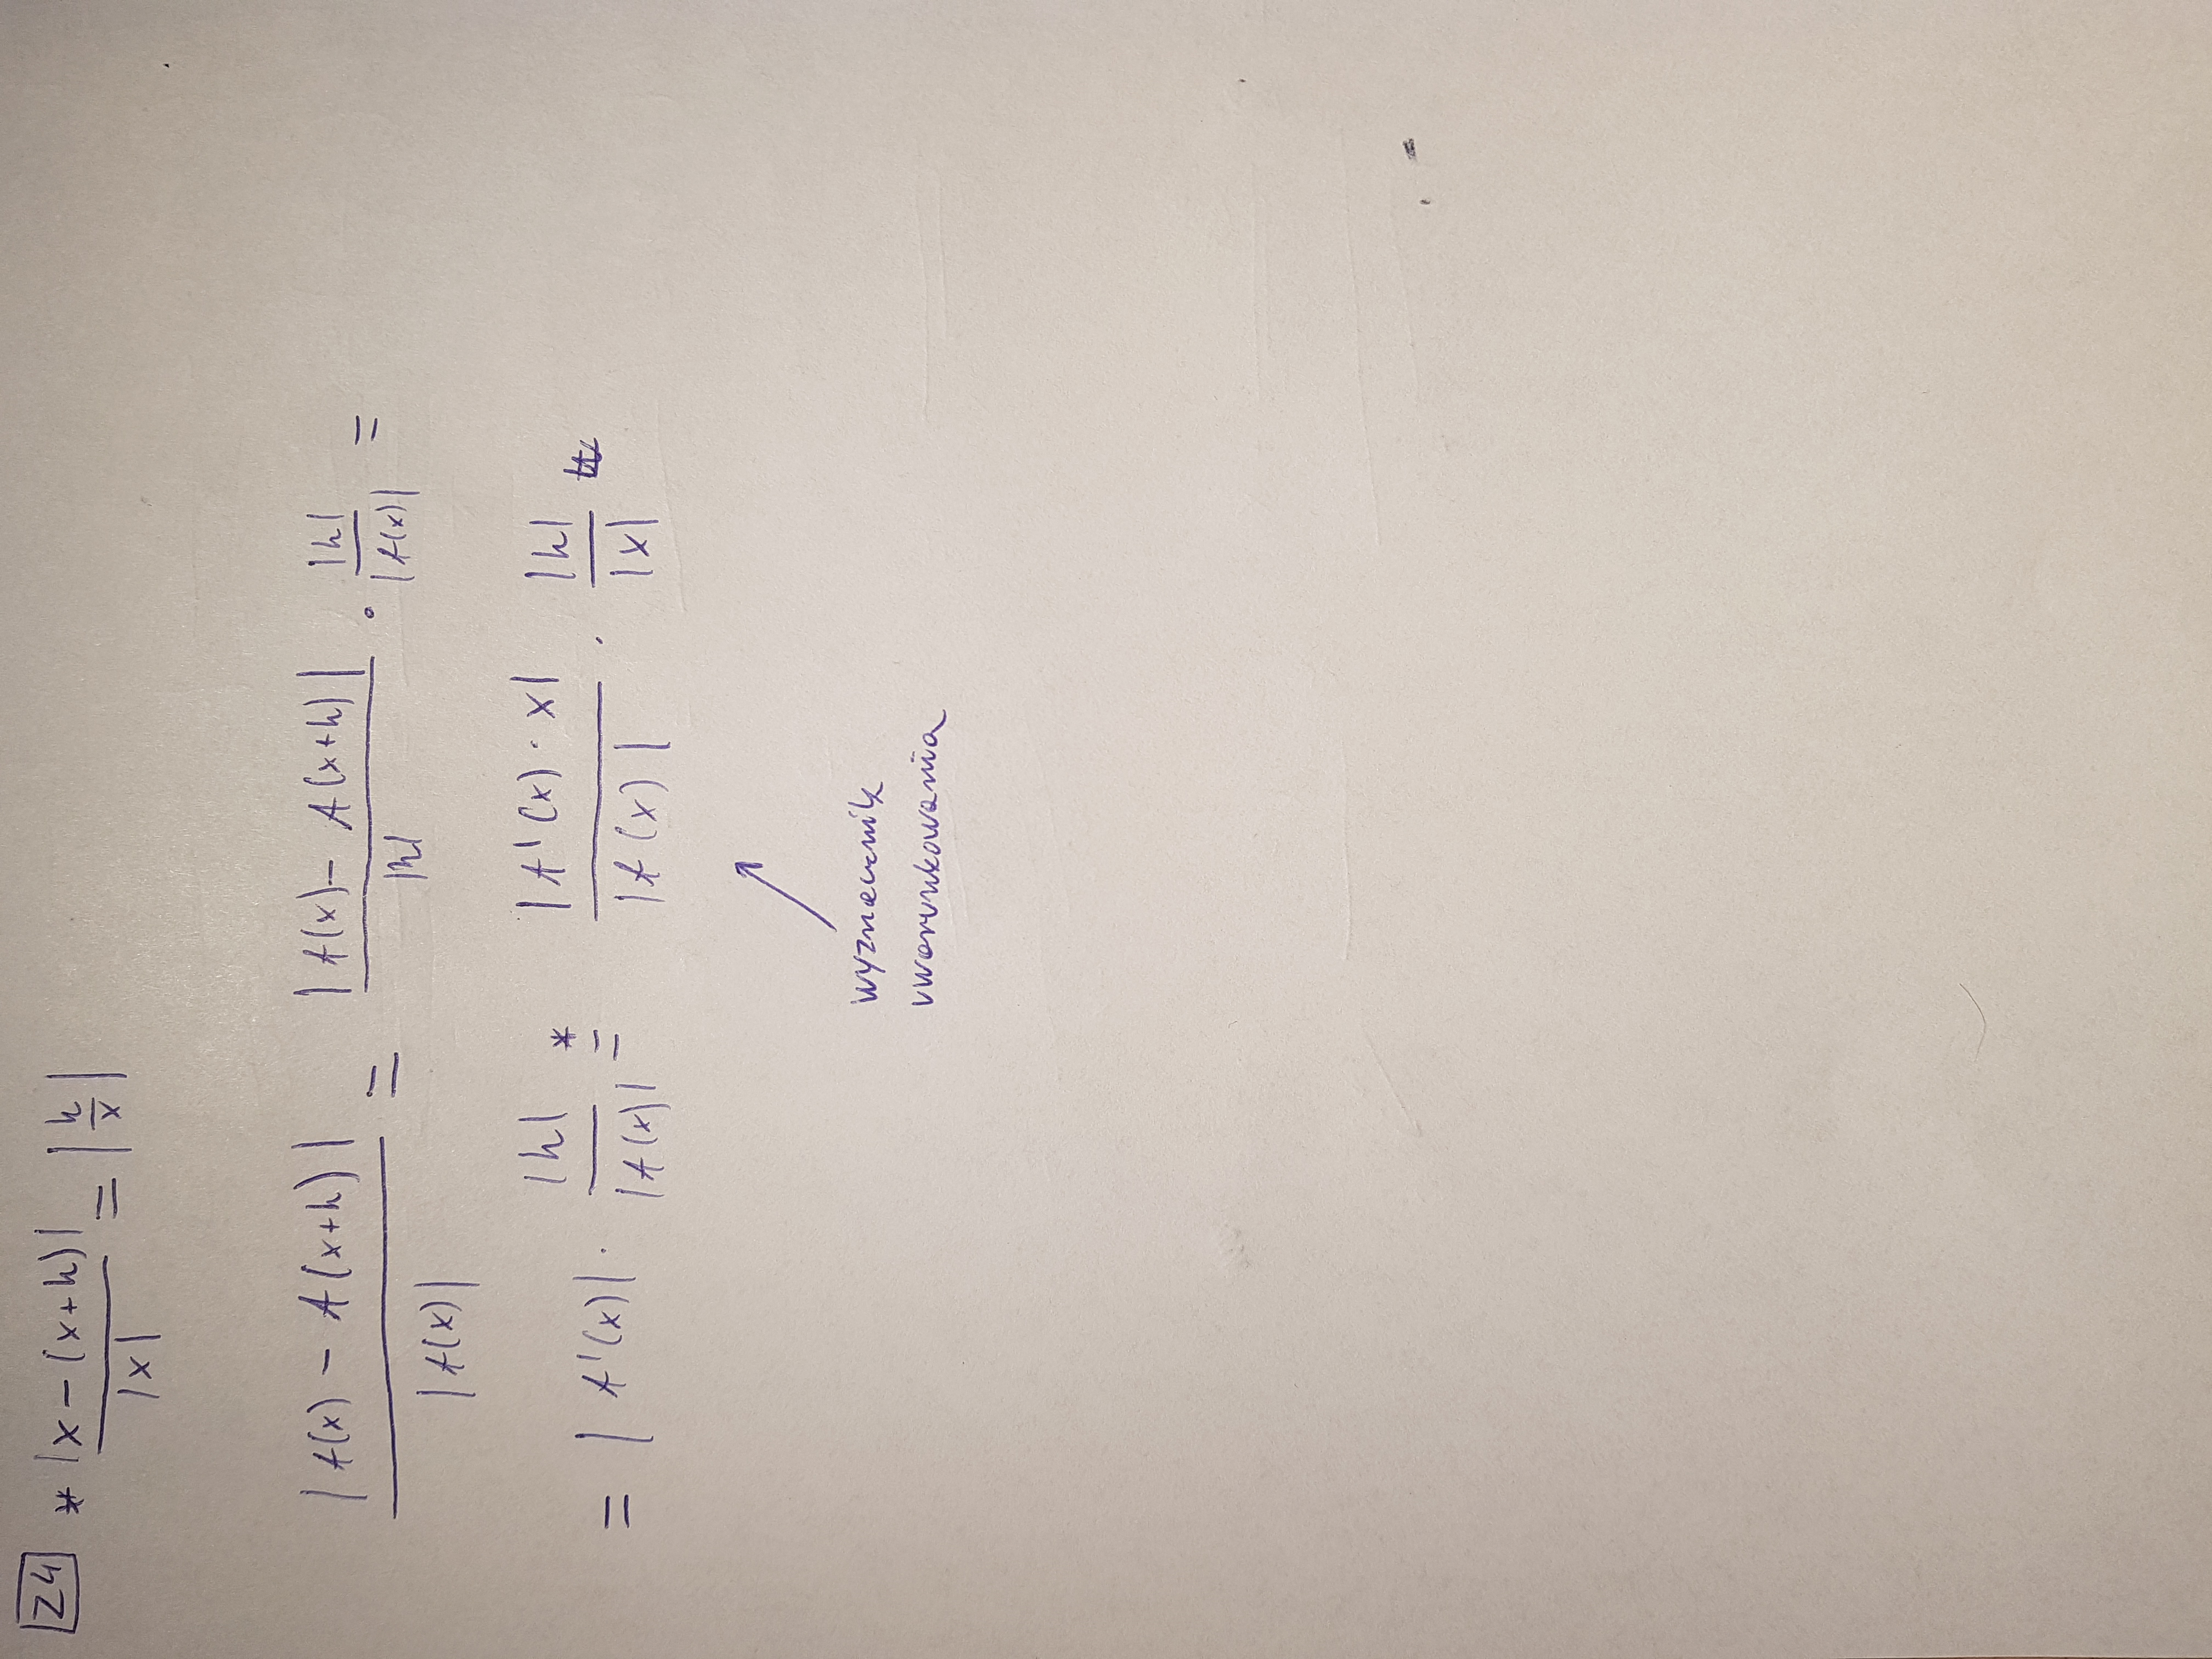 Z4 * |x - (x+h)| / |x| = |h/x|
|f(x) - f(x+h)| / |f(x)| = |f(x) - f(x+h)| / |h| · |h| / |f(x)| =
= |f'(x)| · |h| / |f(x)| *= |f'(x) · x| / |f(x)| · |h| / |x|
wyznacznik
uwarunkowania